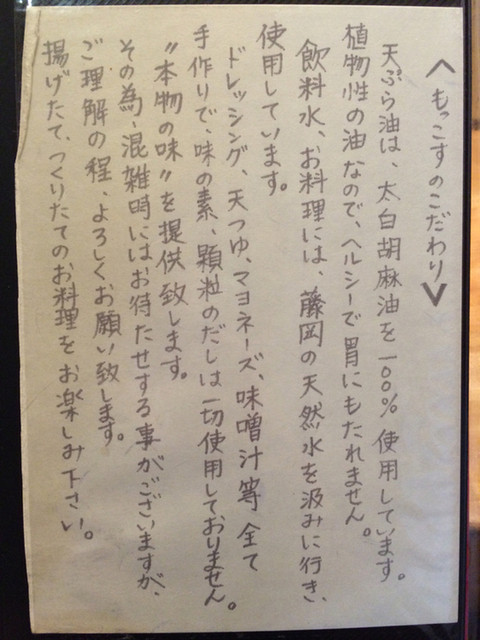 ＜もっこすのこだわり＞
天ぷら油は、太白胡麻油を一〇〇％使用しています。
植物性の油なので、ヘルシーで胃にもたれません。
飲料水、お料理には、藤岡の天然水を汲みに行き、
使用しています。
ドレッシング、天つゆ、マヨネーズ、味噌汁等全て
手作りで、味の素、顆粒のだしは一切使用しておりません。
〝本物の味〟を提供致します。
その為、混雑時にはお待たせする事がございますが、
ご理解の程、よろしくお願い致します。
揚げたて、つくりたてのお料理をお楽しみ下さい。